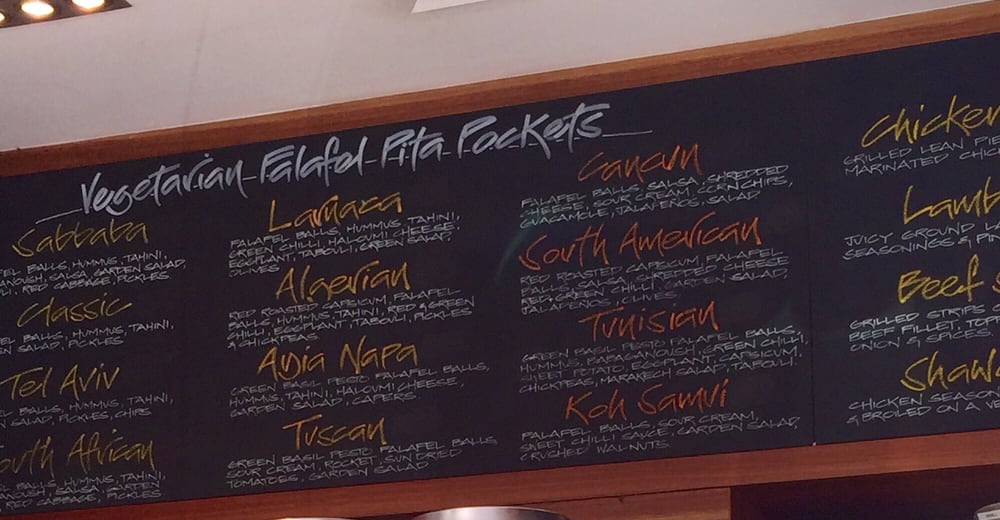 Vegetarian Falafel Pita Pockets
Sabbaba
BALLS, HUMMUS, TAHINI,
SALSA, GARDEN SALAD,
RED CABBAGE, PICKLES
Classic
BALLS, HUMMUS, TAHINI,
SALAD, PICKLES
Tel Aviv
BALLS, HUMMUS, TAHINI,
SALAD, PICKLES, CHIPS
African
BALLS, HUMMUS, TAHINI,
SALSA, GARDEN
RED CABBAGE, PICKLES
Larnaca
FALAFEL BALLS, HUMMUS, TAHINI,
GREEN CHILLI, HALOUMI CHEESE,
EGGPLANT, TABOULI, GREEN SALAD,
OLIVES
Algerian
RED ROASTED CAPSICUM, FALAFEL
BALLS, HUMMUS, TAHINI, RED & GREEN
CHILLI, EGGPLANT, TABOULI, PICKLES
& CHICKPEAS
Ayia Napa
GREEN BASIL PESTO FALAFEL BALLS,
HUMMUS, TAHINI, HALOUMI CHEESE,
GARDEN SALAD, CAPERS
Tuscan
GREEN BASIL PESTO FALAFEL BALLS
SOUR CREAM, ROCKET, SUNDRIED
TOMATOES, GARDEN SALAD
Cancun
FALAFEL BALLS, SALSA, SHREDDED
CHEESE, SOUR CREAM, CORNCHIPS,
GUACAMOLE, JALAPENOS, SALAD
South American
RED ROASTED CAPSICUM, FALAFEL
BALLS, SALSA, SHREDDED CHEESE
RED & GREEN CHILLI, GARDEN SALAD,
JALAPENOS, OLIVES
Tunisian
GREEN BASIL PESTO FALAFEL BALLS,
HUMMUS, BABAGANOUSH, GREEN CHILLI,
SWEET POTATO, EGGPLANT, CAPSICUM,
CHICKPEAS, MARAKECH SALAD, TABOULI
Koh Samui
FALAFEL BALLS, SOUR CREAM,
SWEET CHILLI SAUCE, GARDEN SALAD,
CRUSHED WALNUTS
Chicken
GRILLED LEAN
MARINATED
Lamb
JUICY GROUND
SEASONINGS &
Beef
GRILLED STRIPS
BEEF FILLET,
ONION & SPICES
CHICKEN
& BROILED ON A